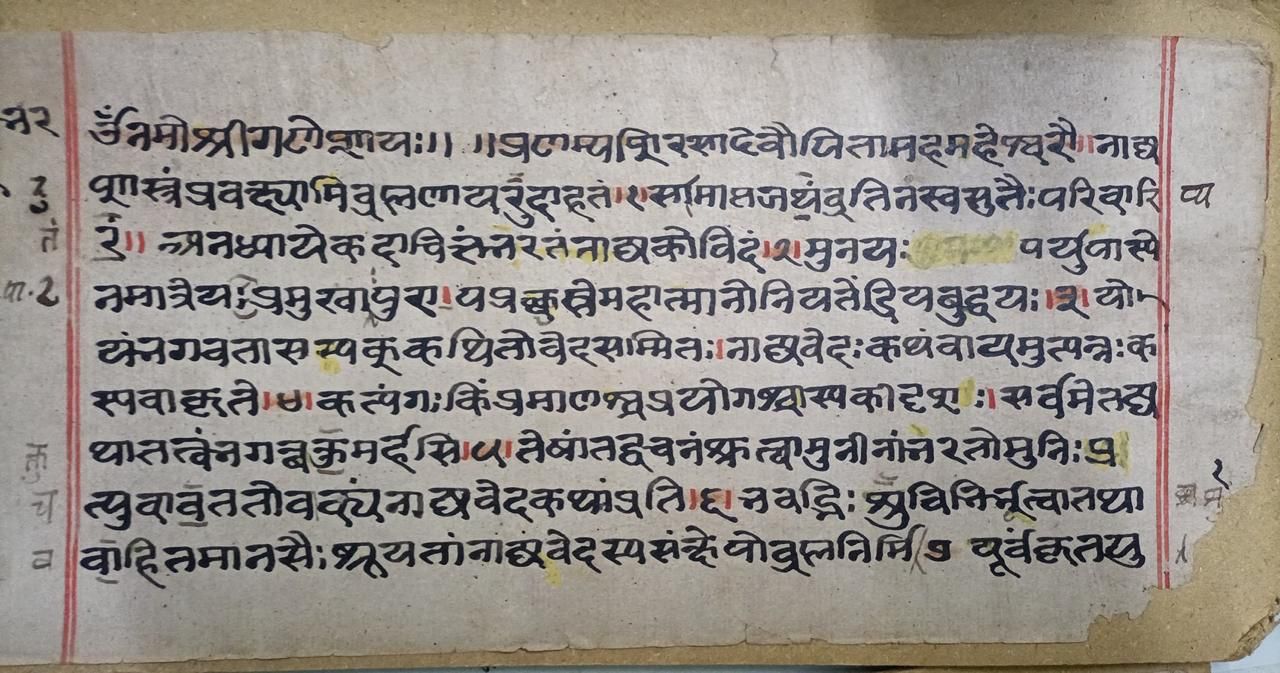 ॐनमोश्रीगणेशायः॥ ॥प्रणम्यशिरसादेवौपितामहमहेश्वरौ॥नाद्य
शास्त्रंप्रवक्ष्यामिब्रह्मणायदुदाहृतं।१।समाप्तजप्यंव्रतिनंस्वसुतैःपरिवारि
तं॥ अनध्यायेकदाचित्तंभरतंनाद्यकोविदं।२।मुनयः पर्युपास्ये
नमात्रेयःप्रमुखापुरा।पप्रच्छुस्तेमहात्मानोनियतेंद्रियबुद्धयः।३।यो
यंभगवतासम्यक्कथितोवेदसम्मितः।नाद्यवेदःकथंवायमुत्पन्नःक
स्यवाकृते।४।कत्यंगःकिंप्रमाणश्चप्रयोगश्चास्यकीदृशः।सर्वमेतद्य
थातत्वंभगवन्वक्तुमर्हसि।५।तेषांतद्वचनंश्रुत्वामुनीनांभरतोमुनिः।प्र
त्युवाचततोवाक्यंनाद्यवेदकथांप्रति।६।भवद्भिःशुचिभिर्भूत्वातथा
वाहितमानसैःश्रूयतांनाद्यवेदस्यसंभवोब्रह्मनिर्मि ७ पूर्वंकृतयु